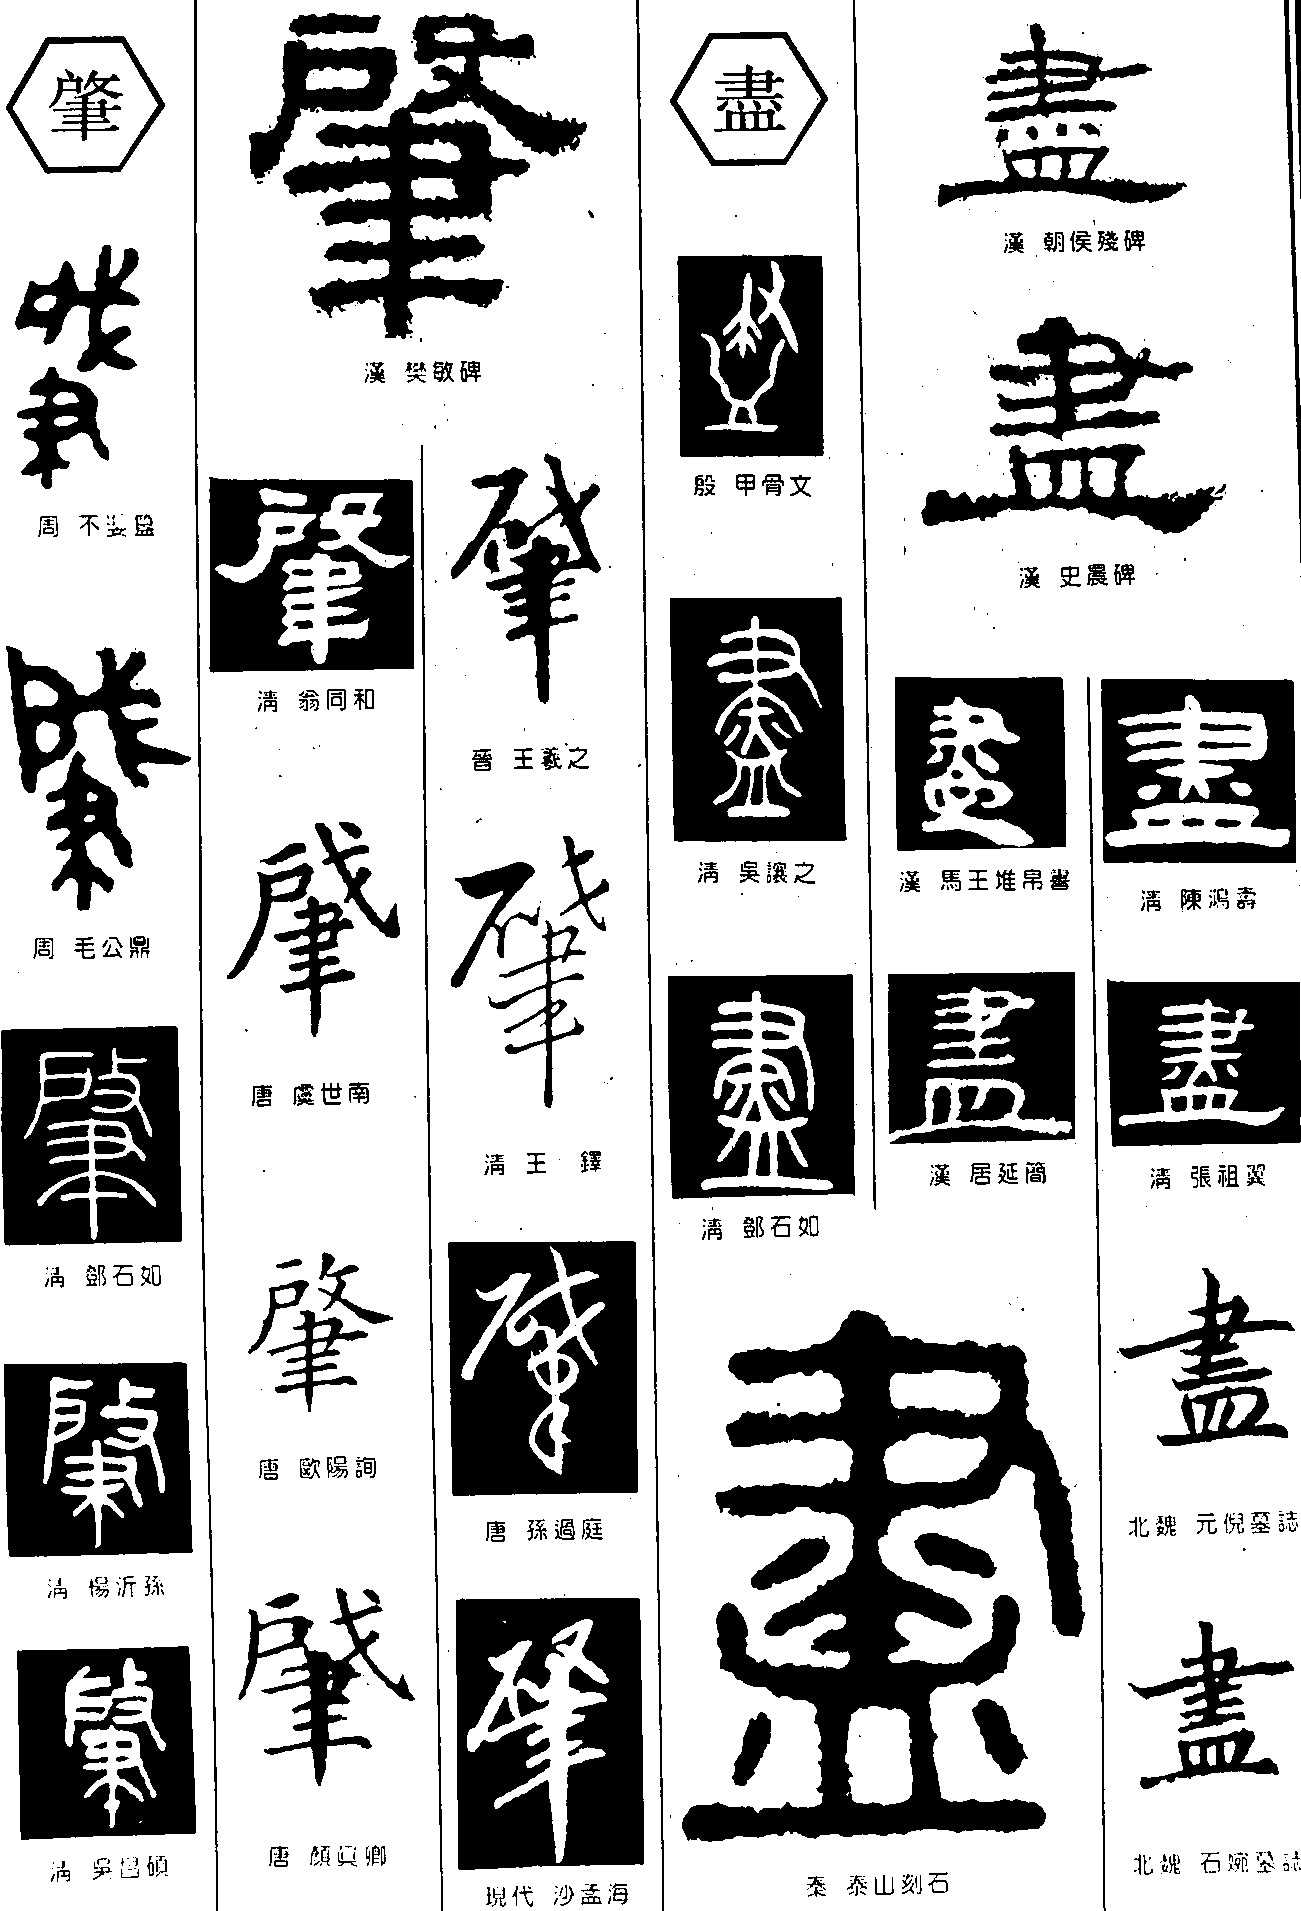 肇
周 不𡢁簋
周 毛公鼎
清 鄧石如
清 楊沂孫
清 吳昌碩
漢 樊敏碑
清 翁同和
唐 虞世南
唐 歐陽詢
唐 顏真卿
晉 王羲之
清 王 鐸
唐 孫過庭
現代 沙孟海
盡
殷 甲骨文
清 吳讓之
清 鄧石如
秦 泰山刻石
漢 朝侯殘碑
漢 史晨碑
漢 馬王堆帛書
漢 居延簡
清 陳鴻壽
清 張祖翼
北魏 元倪墓誌
北魏 石婉墓誌